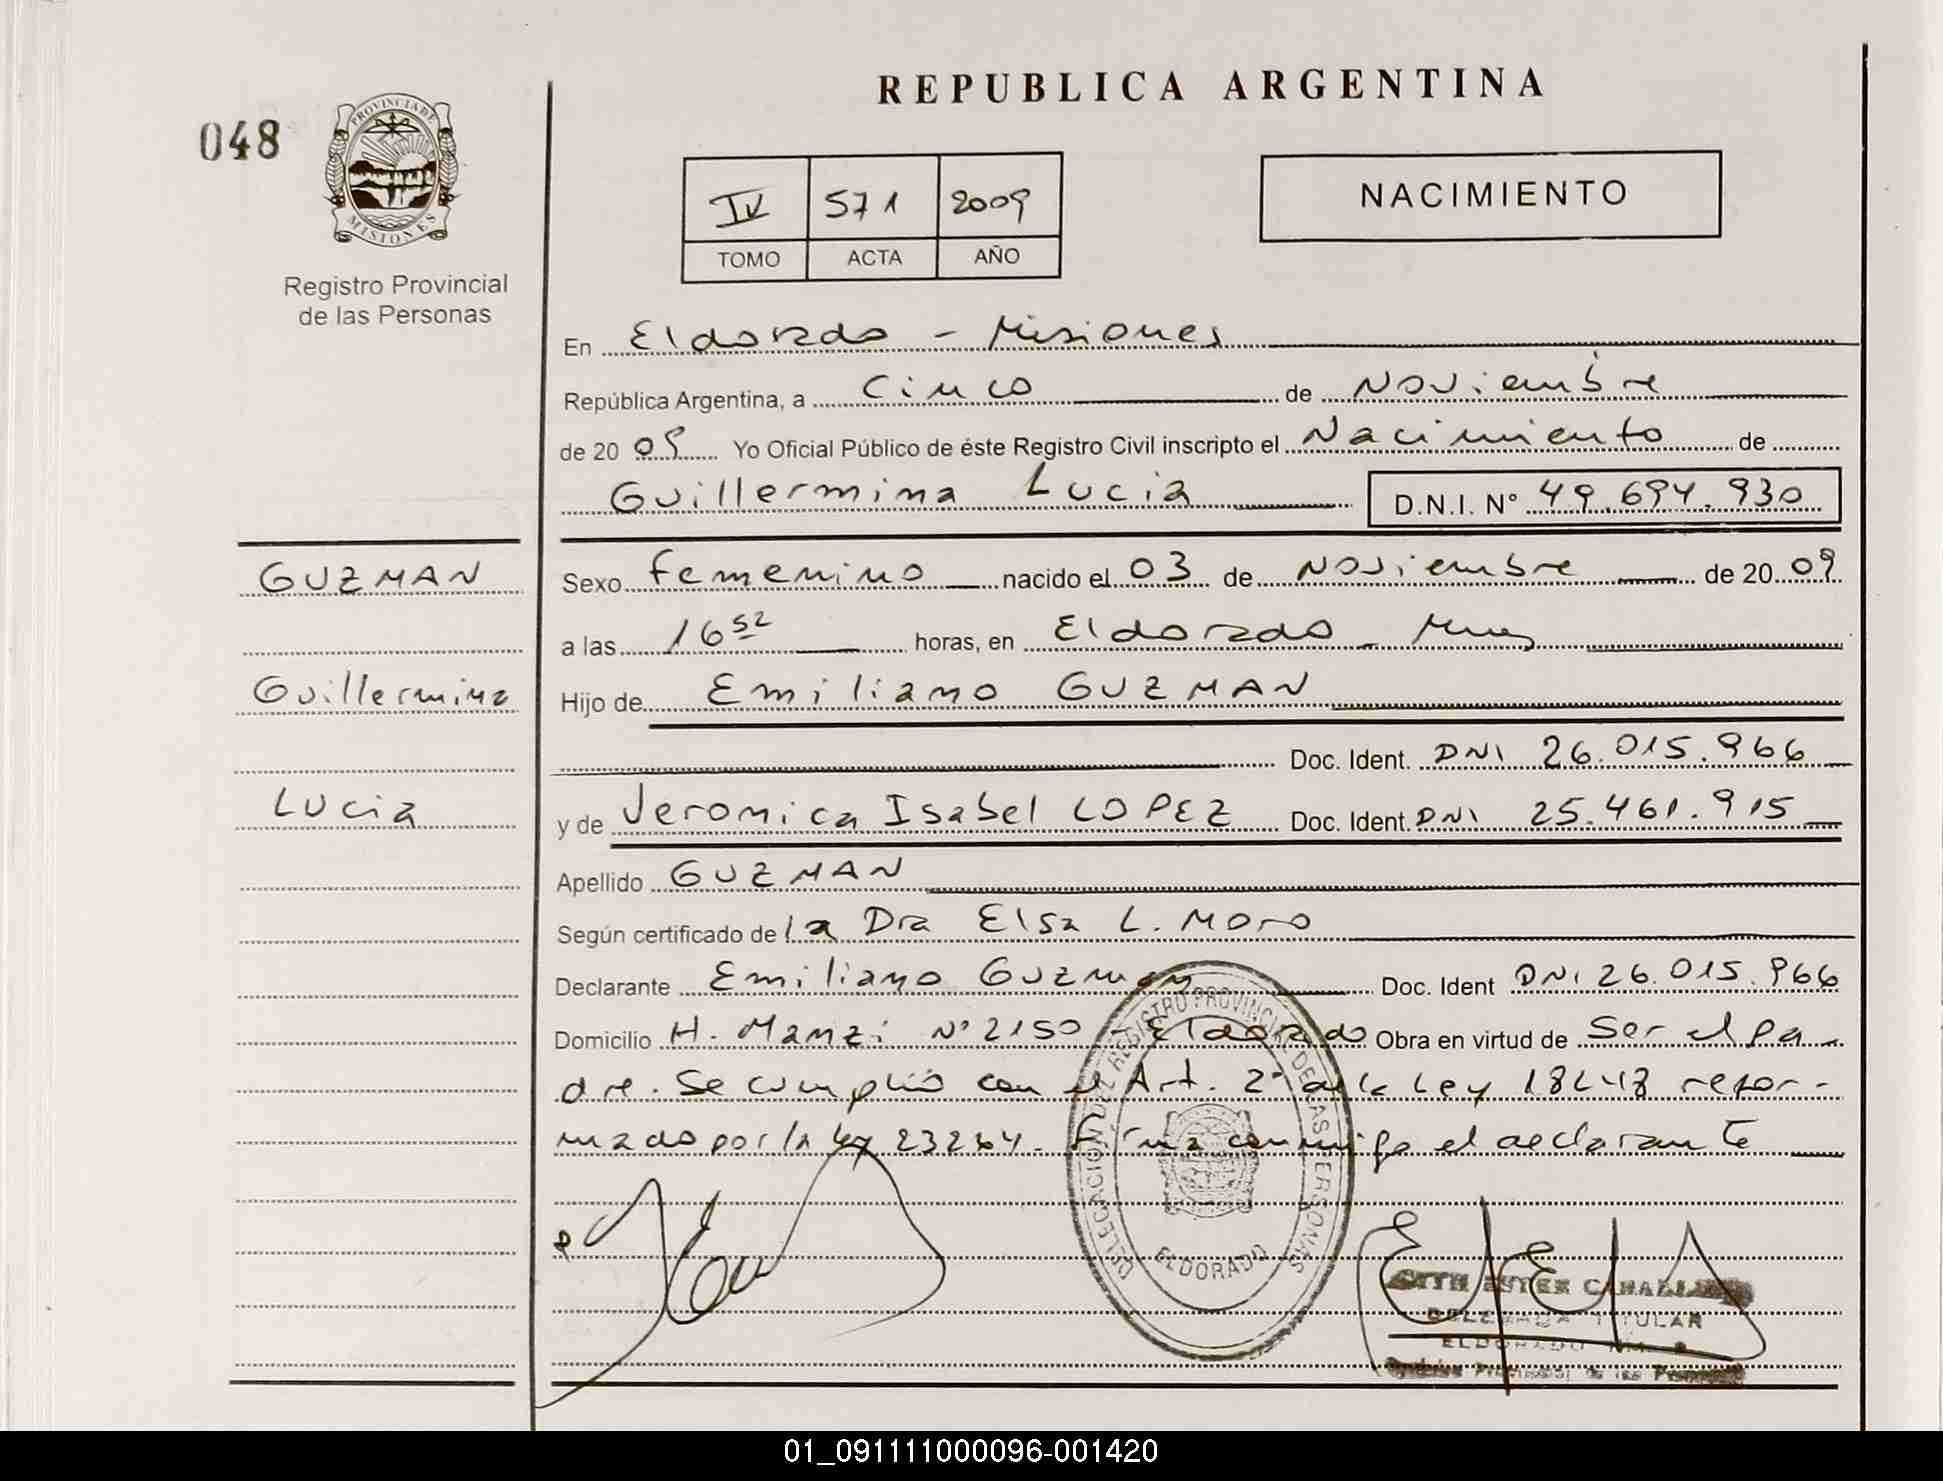 REPUBLICA ARGENTINA
048
PROVINCIA DE
MISIONES
Registro Provincial
de las Personas
IV 571 2009
TOMO ACTA AÑO
NACIMIENTO
En Eldorado - Misiones
República Argentina, a Cinco de Noviembre
de 20 09 Yo Oficial Público de éste Registro Civil inscripto el Nacimiento de
Guillermina Lucia D.N.I. Nº 49.694.930
GUZMAN
Guillermina
Lucia
Sexo femenino nacido el 03 de Noviembre de 20 09
a las 16 52 horas, en Eldorado - Mnes
Hijo de Emiliano GUZMAN
Doc. Ident. DNI 26.015.966
y de Veronica Isabel LOPEZ Doc. Ident. DNI 25.461.915
Apellido GUZMAN
Según certificado de la Dra Elsa L. Moro
Declarante Emiliano Guzman Doc. Ident DNI 26.015.966
Domicilio H. Manzi Nº 2150 - Eldorado Obra en virtud de Ser el pa-
dre. Se cumplió con el Art. 2º de la Ley 18248 refor-
mado por la ley 23264. Firma conmigo el declarante
DELEGACION DEL REGISTRO PROVINCIAL DE LAS PERSONAS
ELDORADO
ESTER
DELEGADA TITULAR
ELDORADO
Provincial de las Personas
01_091111000096-001420